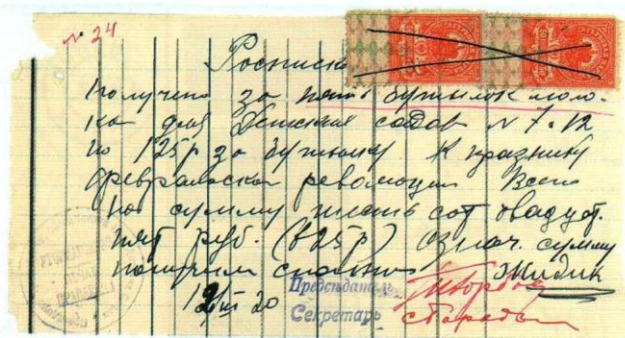 № 24
Росписка
Получено за пять бутылок моло-
ка для Детских садов № 7 · 12
по 125 р за бутылку К празнику
февральской революции Всего
на сумму шесть сот двадцат.
пят руб. (625 р) означ. сумму
получил сполна Жидик
12/III 20
Председатель
Секретарь